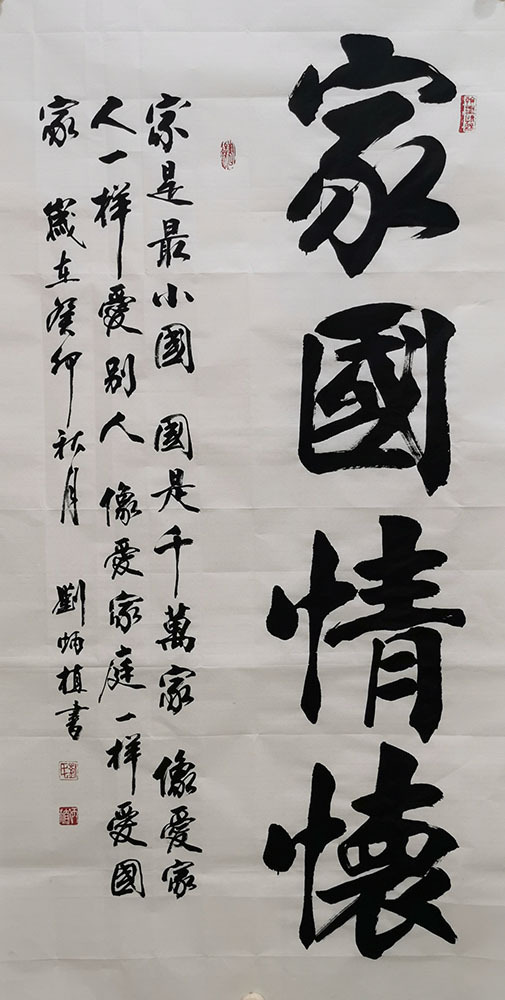 家國情懷
家是最小國 國是千萬家 像愛家
人一样愛别人 像愛家庭一样愛國
家 歲在癸卯秋月 劉炳植書